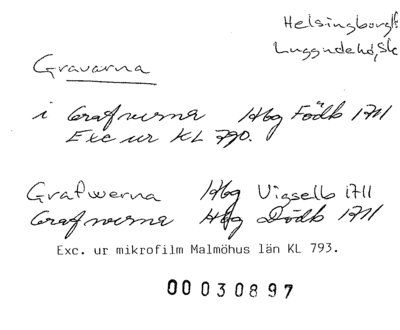 Helsingborg
Luggudehd, Sk
Gravarna
i Grafwerna Hbg Födb 1711
Exc ur KL 790.
Grafwerna Hbg Vigselb 1711
Grafwerna Hbg Dödb 1711
Exc. ur mikrofilm Malmöhus län KL 793.
00030897